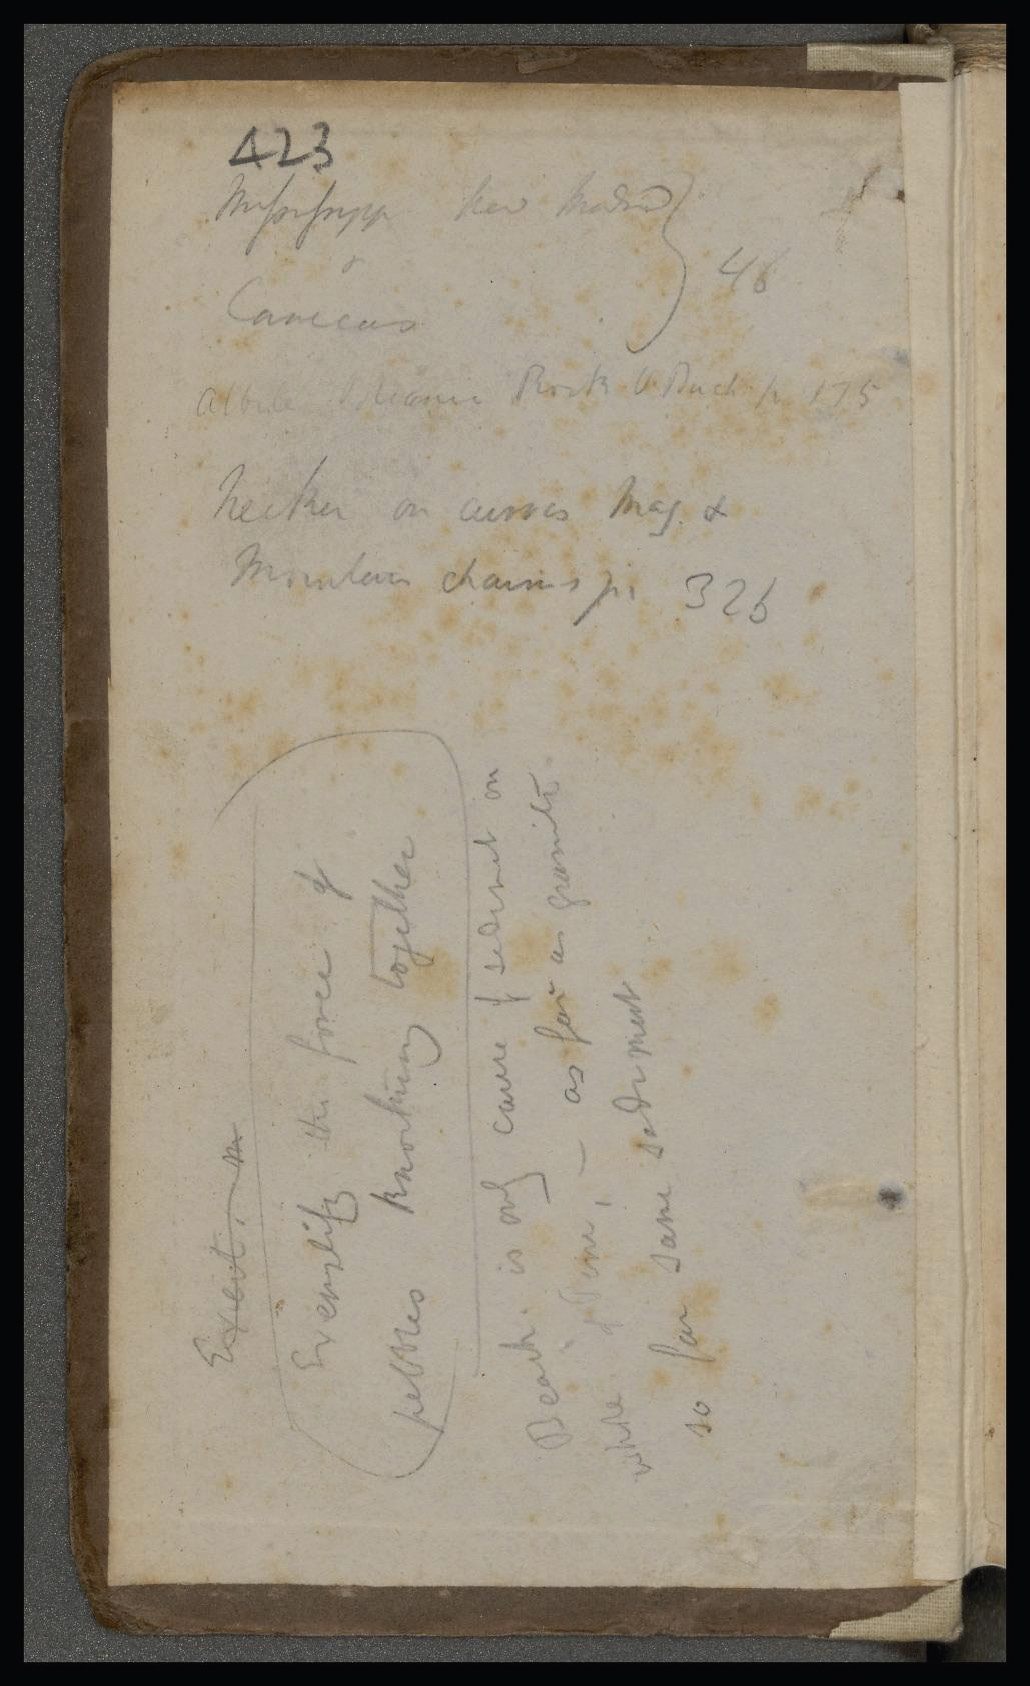 423
Mississippi New Madrid } 46
&
Caraccas
Albite Volcanic Rock V Buch p 175
Necker on curves Mag. &
Mountain chains p. 326
Expect. on
Exemplify the force of
pebbles knocking together
Beach is only cause of sediment on
while — as far as granite
so far same sediment